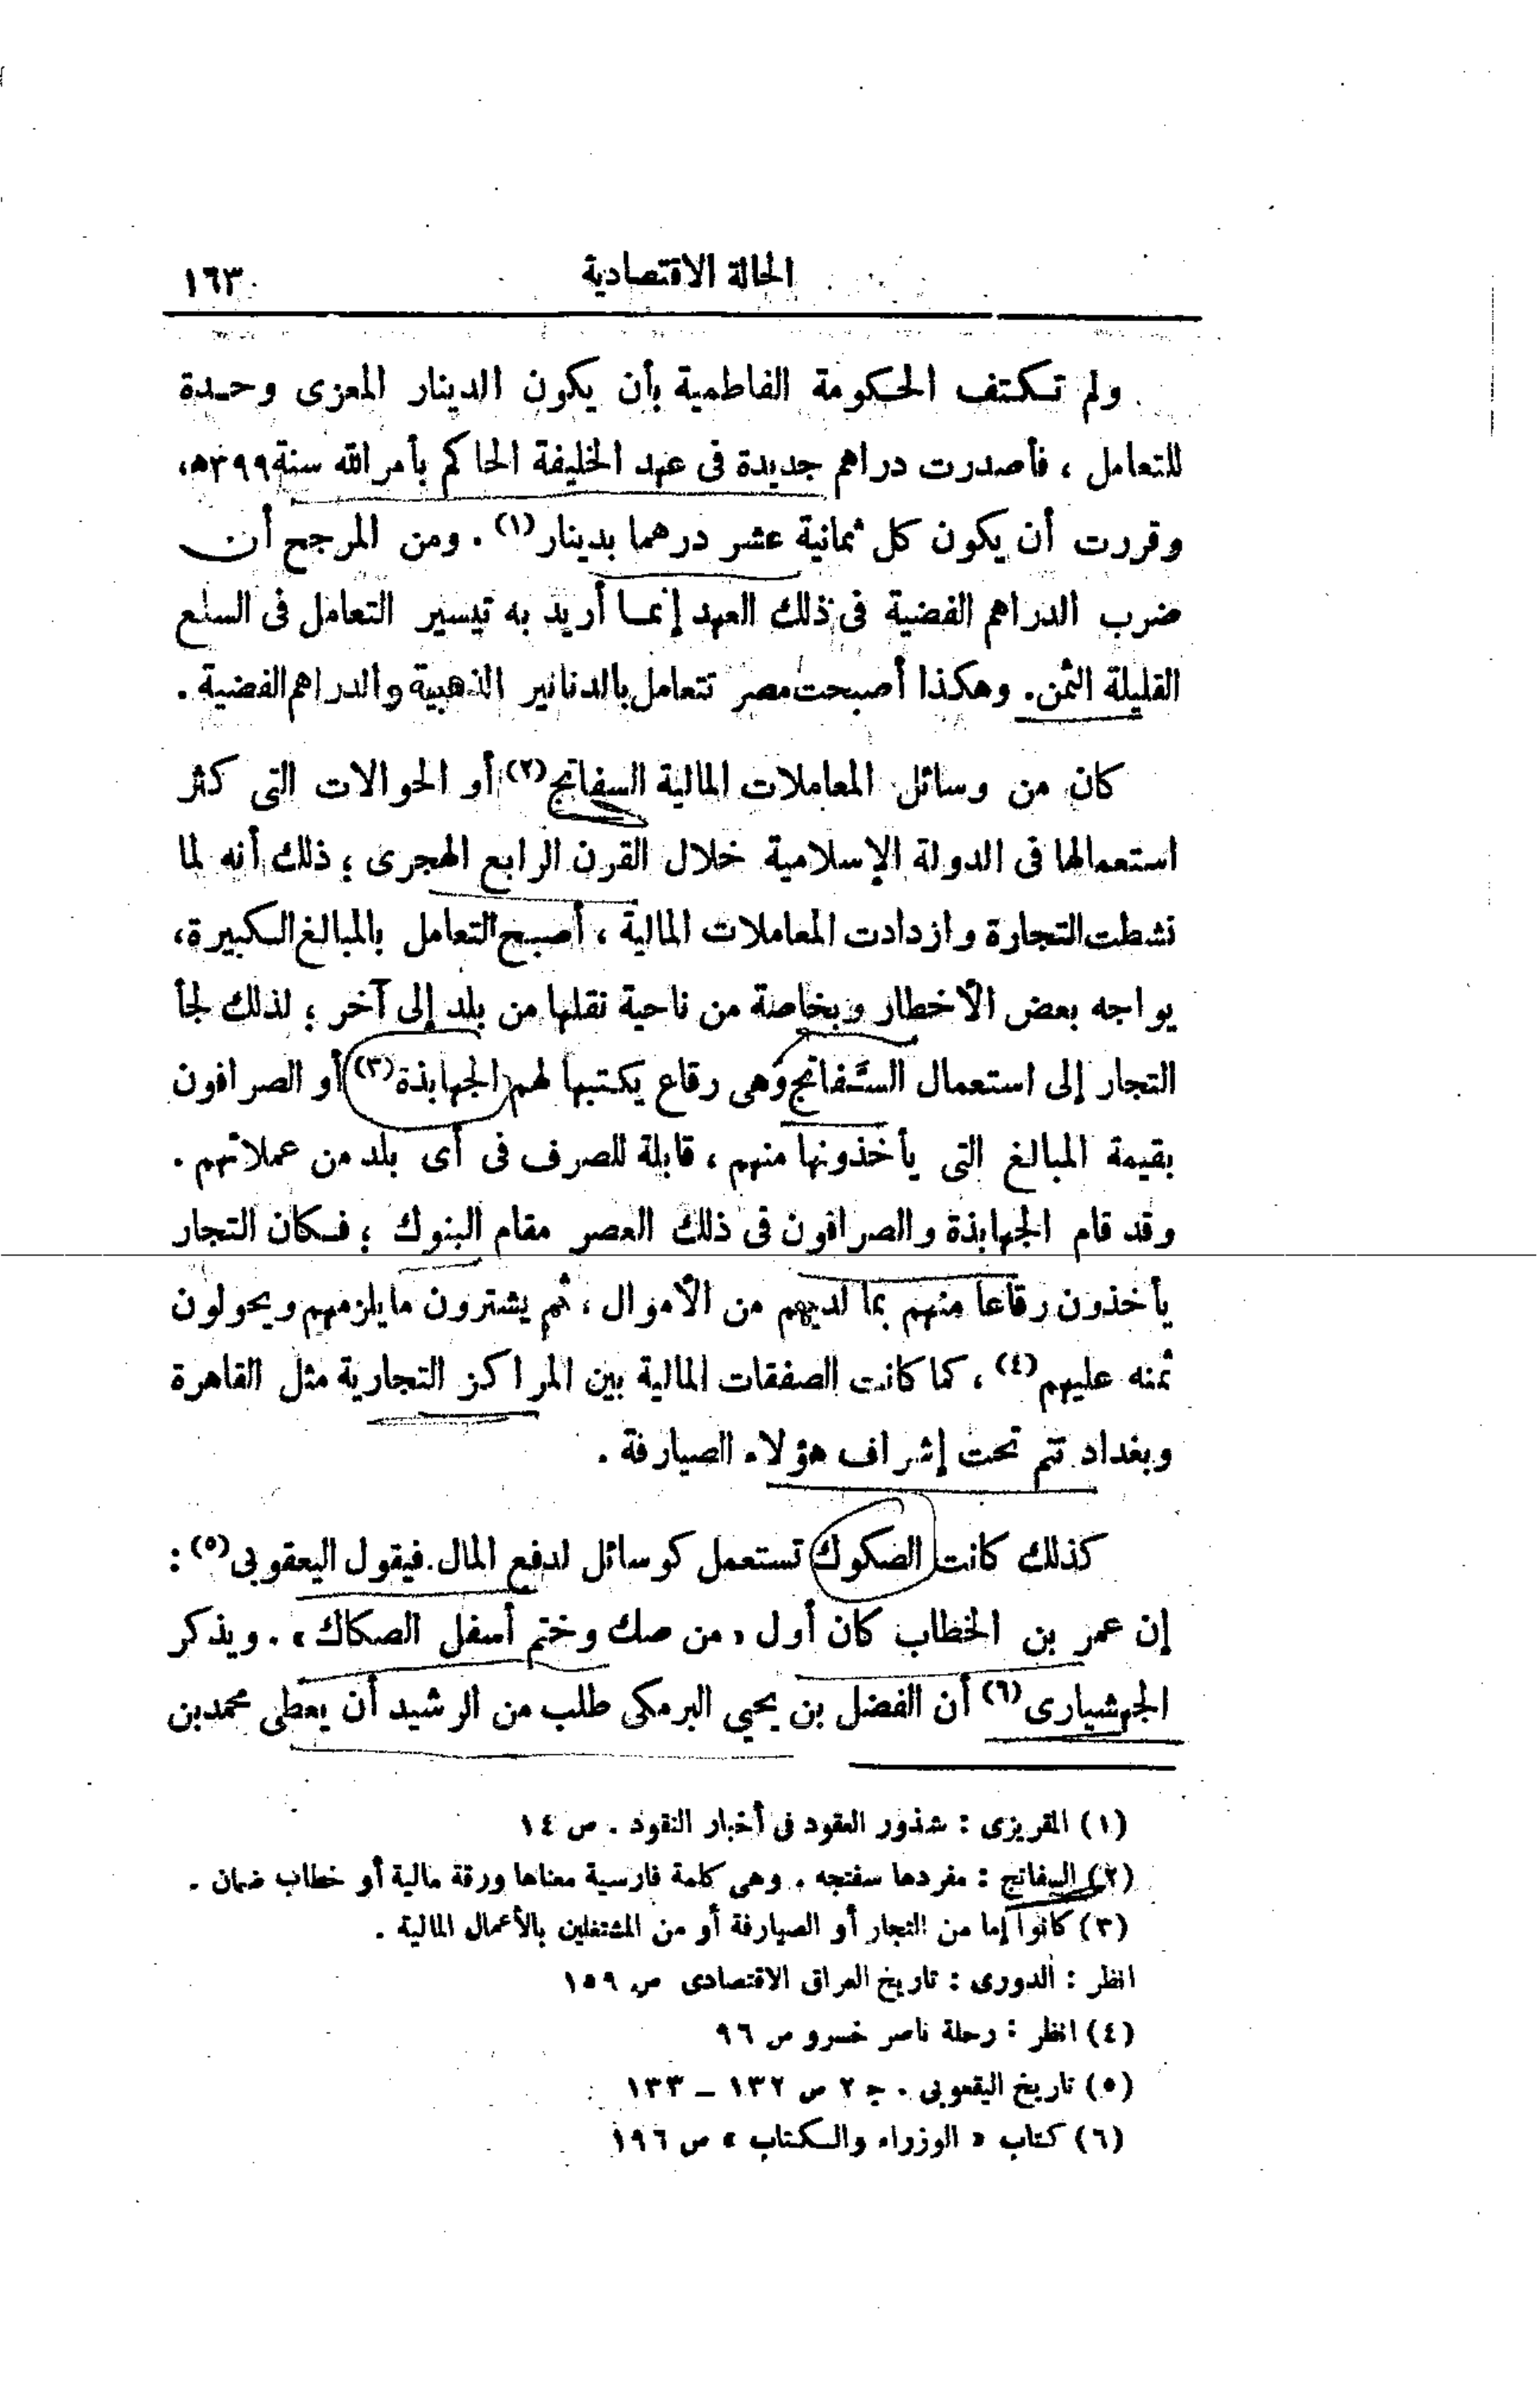 الحالة الاقتصادية ١٦٣
ولم تكتف الحكومة الفاطمية بأن يكون الدينار المعزى وحدة
للتعامل ، فأصدرت دراهم جديدة فى عهد الخليفة الحاكم بأمر الله سنة ٣٩٩ ه،
وقررت أن يكون كل ثمانية عشر درهما بدينار(١) . ومن المرجح أن
ضرب الدراهم الفضية فى ذلك العهد إنما أريد به تيسير التعامل فى السلع
القليلة الثمن. وهكذا أصبحت مصر تتعامل بالدنانير الذهبية والدراهم الفضية .
كان من وسائل المعاملات المالية السفاتج(٢) أو الحوالات التى كثر
استعمالها فى الدولة الإسلامية خلال القرن الرابع الهجرى ؛ ذلك أنه لما
نشطت التجارة وازدادت المعاملات المالية ، أصبح التعامل بالمبالغ الكبيرة،
يواجه بعض الأخطار وبخاصة من ناحية نقلها من بلد إلى آخر ؛ لذلك لجأ
التجار إلى استعمال السفاتج وهى رقاع يكتبها لهم الجهابذة(٣) أو الصرافون
بقيمة المبالغ التى يأخذونها منهم ، قابلة للصرف فى أى بلد من عملاتهم .
وقد قام الجهابذة والصرافون فى ذلك العصر مقام البنوك ؛ فكان التجار
يأخذون رقاعا منهم بما لديهم من الأموال ، ثم يشترون ما يلزمهم ويحولون
ثمنه عليهم(٤) ، كما كانت الصفقات المالية بين المراكز التجارية مثل القاهرة
وبغداد تتم تحت إشراف هؤلاء الصيارفة .
كذلك كانت الصكوك تستعمل كوسائل لدفع المال. فيقول اليعقوبى(٥) :
إن عمر بن الخطاب كان أول «من صك وختم أسفل الصكاك» . ويذكر
الجهشيارى(٦) أن الفضل بن يحيى البرمكى طلب من الرشيد أن يعطى محمد بن
(١) المقريزى : شذور العقود فى أخبار النقود . ص ١٤
(٢) السفاتج : مفردها سفتجه . وهى كلمة فارسية معناها ورقة مالية أو خطاب ضمان .
(٣) كانوا إما من التجار أو الصيارفة أو من المشتغلين بالأعمال المالية .
انظر : الدورى : تاريخ العراق الاقتصادى ص ١٥٩
(٤) انظر : رحلة ناصر خسرو ص ٩٦
(٥) تاريخ اليقعوبى . ج ٢ ص ١٣٢ – ١٣٣
(٦) كتاب « الوزراء والكتاب » ص ١٩٦